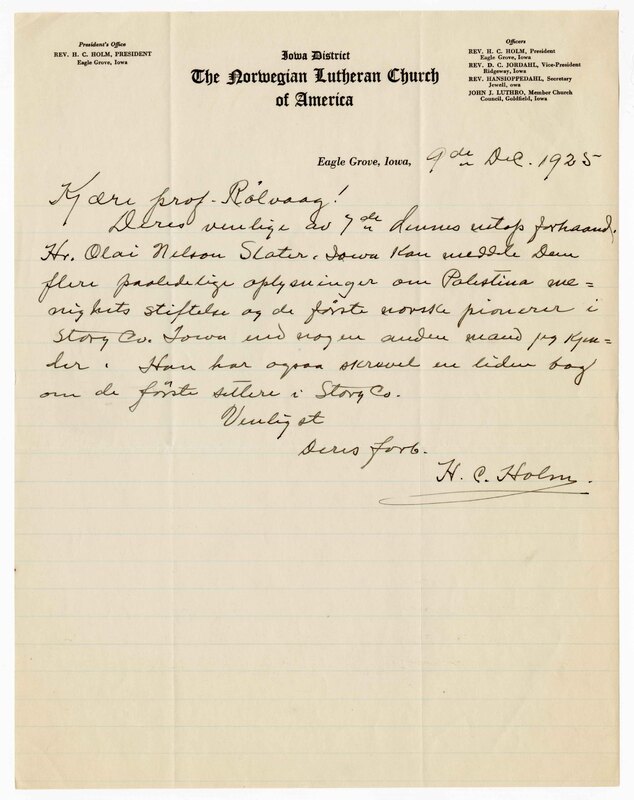 President's Office
REV. H. C. HOLM, PRESIDENT
Eagle Grove, Iowa
Iowa District
The Norwegian Lutheran Church
of America
Officers
REV. H. C. HOLM, President
Eagle Grove, Iowa
REV. D. C. JORDAHL, Vice-President
Ridgeway, Iowa
REV. HANSIOPPEDAHL, Secretary
Jewell, owa
JOHN J. LUTHRO, Member Church
Council, Goldfield, Iowa
Eagle Grove, Iowa, 9de Dec. 1925
Kjære prof. Rölvaag!
Deres venlige av 7de dennes netop forhaand.
Hr. Olai Nelson Slater, Iowa kan meddele Dem
flere paalidelige oplysninger om Palestina me=
nighets stiftelse og de förste norske pionerer i
Story Co. Iowa end nogen anden mand jeg kjen-
der. Han har ogsaa skrevet en liden bog
om de förste settlere i Story Co.
Venligst
Deres forb.
H. C. Holm.